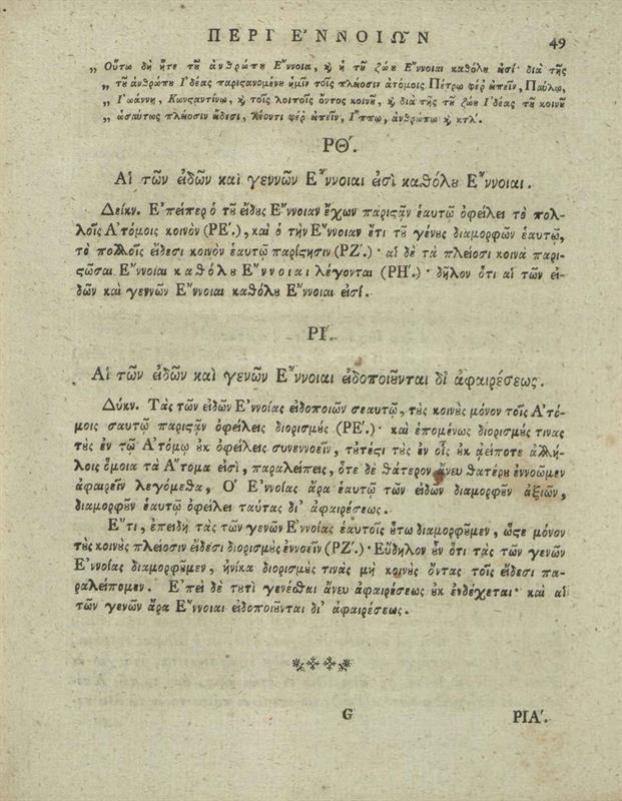 ΠΕΡΙ Ε᾿ΝΝΟΙΩ῀Ν 49
„ Οὕτω δὴ ἥτε τοῦ ἀνθρώπου Ε῎ννοια, καὶ ἡ τοῦ ζώου Ε῎ννοιαι καθόλου εἰσί· διὰ τῆς
„ τοῦ ἀνθρώπου Ι᾿δέας παριςανομένου ἡμῖν τοῖς πλείοσιν ἀτόμοις Πέτρῳ φὲρ εἰπεῖν, Παύλῳ,
„ Γωάννῃ, Κωνςαντίνῳ, καὶ τοῖς λοιποῖς ὄντος κοινοῦ, καὶ διὰ τῆς τοῦ ζώου Ι᾿δέας τοῦ κοινοῦ
„ ὡσαύτως πλείοσιν εἴδεσι, λέοντι φὲρ εἰπεῖν, Γ῞ππῳ, ἀνθρώπῳ καὶ κτλ.
ΡΘ΄.
Αἱ τῶν εἰδῶν καὶ γεννῶν Ε῎ννοιαι εἰσὶ καθόλου Ε῎ννοιαι.
Δείκν. Ε᾿πείπερ ὁ τοῦ εἴδους Ε῎ννοιαν ἔχων παριςᾷν ἑαυτῷ ὀφείλει τὸ πολ-
λοῖς Α᾿τόμοις κοινὸν (ΡΕ΄.), καὶ ὁ τὴν Ε῎ννοιαν ἔτι τοῦ γένους διαμορφῶν ἑαυτῷ,
τὸ πολλοῖς εἴδεσι κοινὸν ἑαυτῷ παρίςησιν (ΡΖ΄.)· αἱ δὲ τὰ πλείοσι κοινὰ παρι-
ςῶσαι Ε῎ννοιαι καθόλου Ε῎ννοιαι λέγονται (ΡΗ΄.)· δῆλον ὅτι αἱ τῶν εἰ-
δῶν καὶ γεννῶν Ε῎ννοιαι καθόλου Ε῎ννοιαι εἰσί.
ΡΙ΄.
Αἱ τῶν εἰδῶν καὶ γενῶν Ε῎ννοιαι εἰδοποιοῦνται δι᾿ ἀφαιρέσεως.
Δύκν. Τὰς τῶν εἰδῶν Ε᾿ννοίας εἰδοποιῶν σεαυτῷ, τοὺς κοινοὺς μόνον τοῖς Α᾿τό-
μοις σαυτῷ παριςᾷν ὀφείλεις διορισμοὺς (ΡΕ΄.)· καὶ ἑπομένως διορισμούς τινας
τοὺς ἐν τῷ Α᾿τόμῳ οὐκ ὀφείλεις συνεννοεῖν, τουτέςι τοὺς ἐν οἷς οὐκ ἀείποτε ἀλλή-
λοις ὅμοια τὰ Α῎τομα εἰσὶ, παραλείπεις, ὅτε δὲ θάτερον ἄνευ θατέρου ἐννοῶμεν
ἀφαιρεῖν λεγόμεθα, Ο῾ Ε᾿ννοίας ἄρα ἑαυτῷ τῶν εἰδῶν διαμορφοῦν ἀξιῶν,
διαμορφοῦν ἑαυτῷ ὀφείλει ταύτας δι᾿ ἀφαιρέσεως.
Ε῎τι, ἐπειδὴ τὰς τῶν γενῶν Ε᾿ννοίας ἑαυτοῖς οὕτω διαμορφοῦμεν, ὥςε μόνον
τοὺς κοινοὺς πλείοσιν εἴδεσι διορισμοὺς ἐννοεῖν (ΡΖ΄.)· Εὔδηλον οὖν ὅτι τὰς τῶν γενῶν
Ε᾿ννοίας διαμορφοῦμεν, ἡνίκα διορισμούς τινὰς μὴ κοινοὺς ὄντας τοῖς εἴδεσι πα-
ραλείπομεν. Ε᾿πεὶ δὲ τουτὶ γενέσθαι ἄνευ ἀφαιρέσεως οὐκ ἐνδέχεται· καὶ αἱ
τῶν γενῶν ἄρα Ε῎ννοιαι εἰδοποιοῦνται δι᾿ ἀφαιρέσεως.
G ΡΙΑ΄.